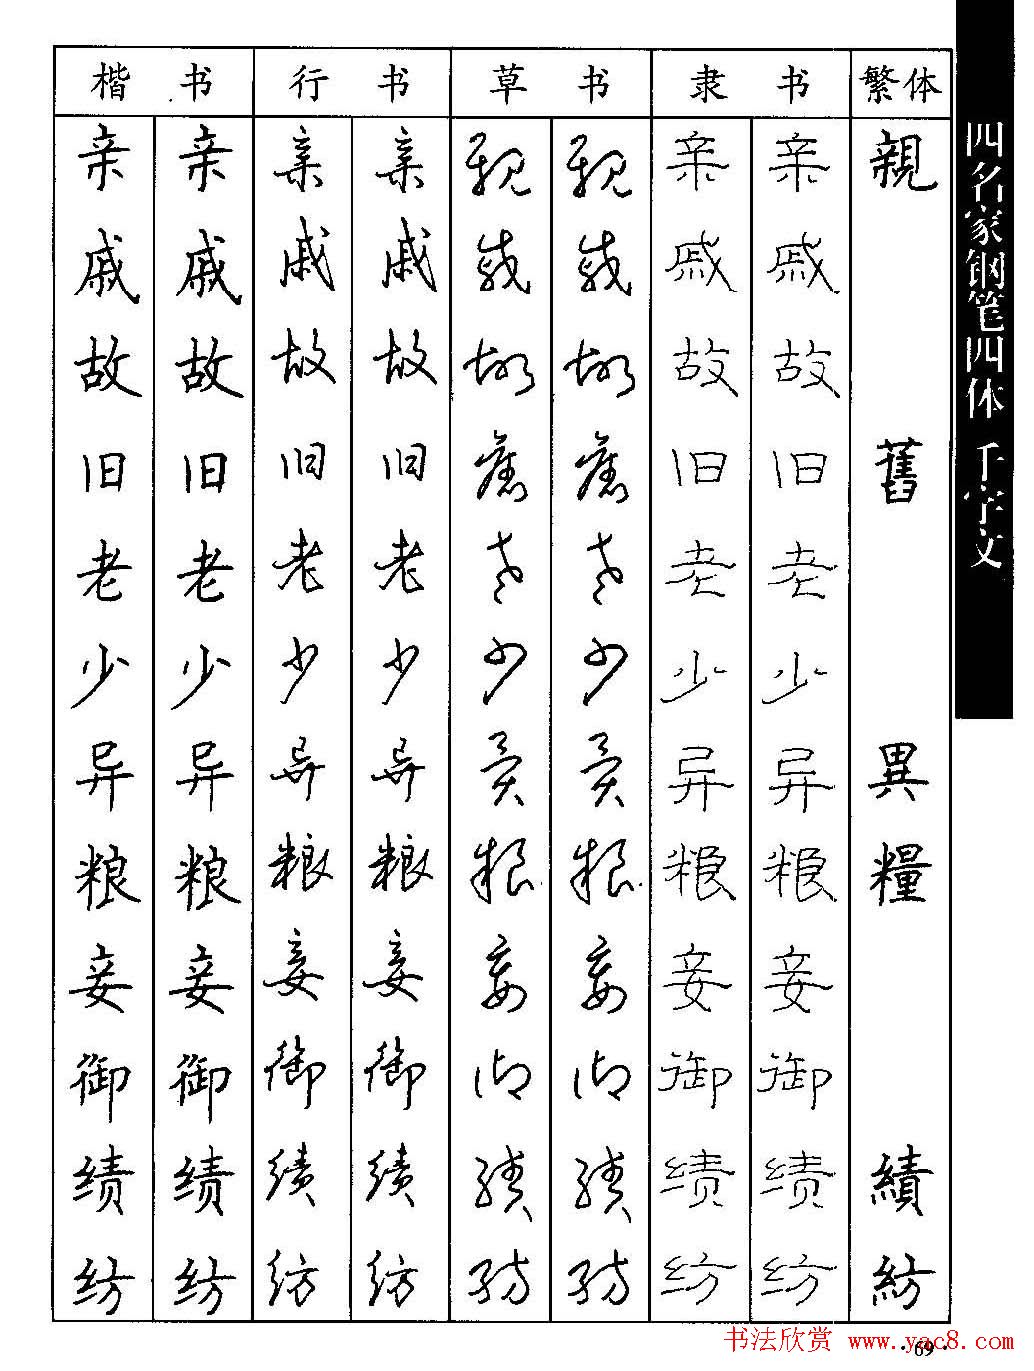 楷 书 行 书 草 书 隶 书 繁体
亲 亲 亲 亲 親 親 亲 亲 親
戚 戚 戚 戚 戚 戚 戚 戚
故 故 故 故 故 故 故 故
旧 旧 旧 旧 舊 舊 旧 旧 舊
老 老 老 老 老 老 老 老
少 少 少 少 少 少 少 少
异 异 异 异 異 異 异 异 異
粮 粮 粮 粮 粮 粮 粮 粮 糧
妾 妾 妾 妾 妾 妾 妾 妾
御 御 御 御 御 御 御 御
绩 绩 绩 绩 績 績 绩 绩 績
纺 纺 纺 纺 紡 紡 纺 纺 紡
四名家钢笔四体 千字文
书法欣赏 www.yac8.com
·69·